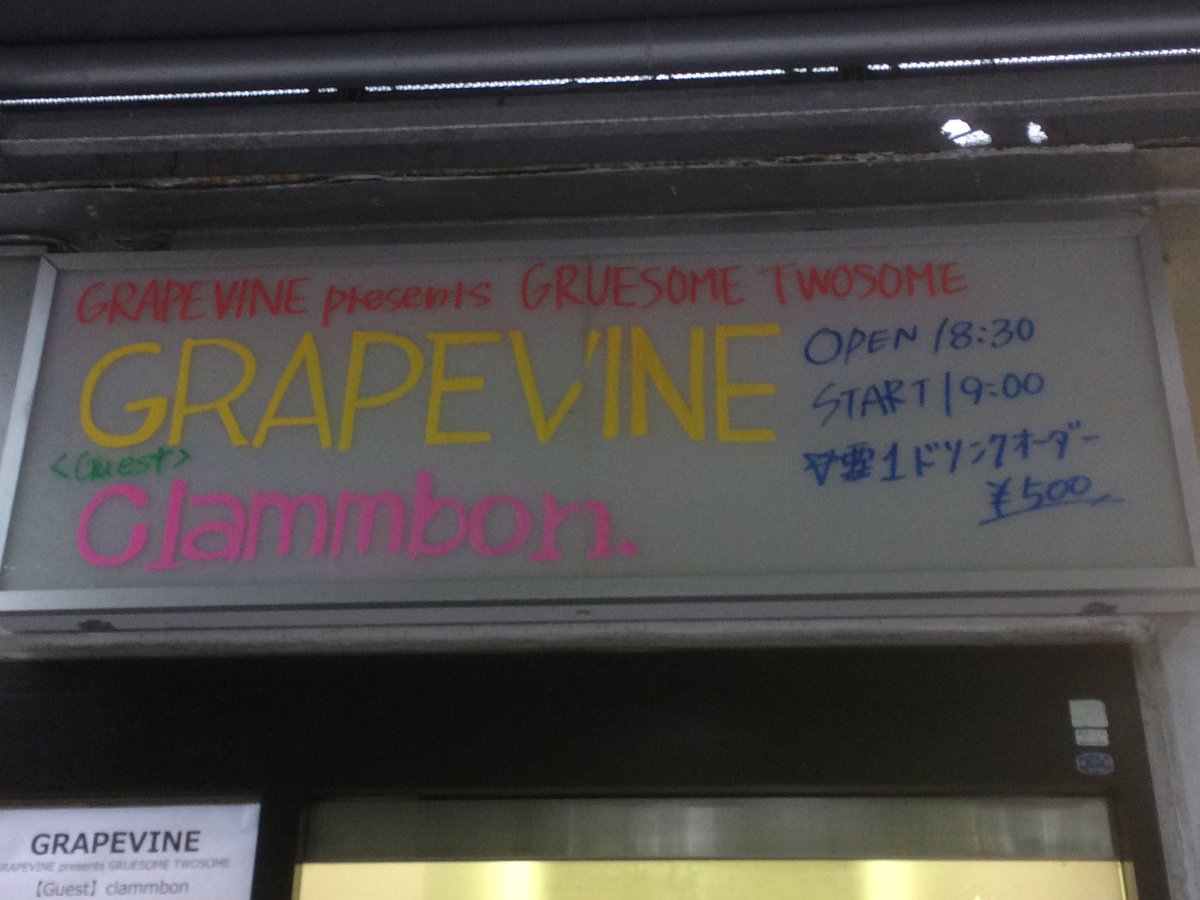 GRAPEVINE presents GRUESOME TWOSOME
GRAPEVINE
OPEN 18:30
START 19:00
<Guest>
clammbon.
1ドリンクオーダー
¥500
GRAPEVINE
GRAPEVINE presents GRUESOME TWOSOME
【Guest】clammbon